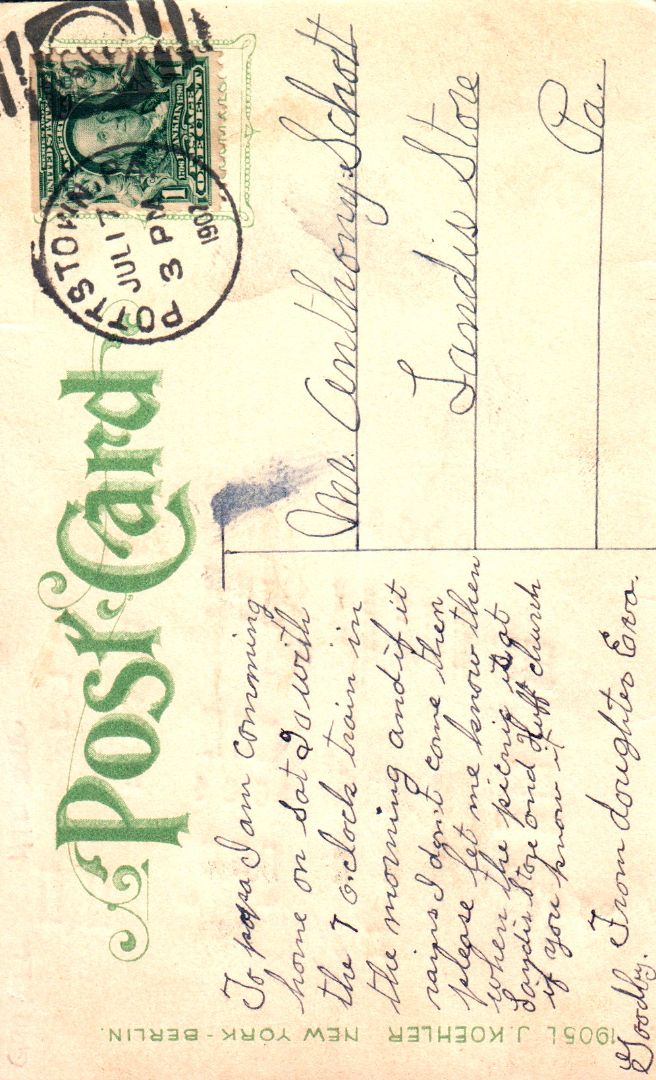 Post Card
POTTSTOWN, PA.
JUL 17
3 PM
1907
UNITED STATES OF AMERICA
FRANKLIN
POSTAGE
ONE CENT
1
Mr. Anthony Schott
Landis Store
Pa.
To papa I am comming
home on sat 20 with
the 7 o'clock train in
the morning and if it
rains I don't come then
please let me know then
when the picnic is at
Landis Store and Huff church
if you know it
Goodby. From doughter Eva.
19051 J. KOEHLER NEW YORK - BERLIN.